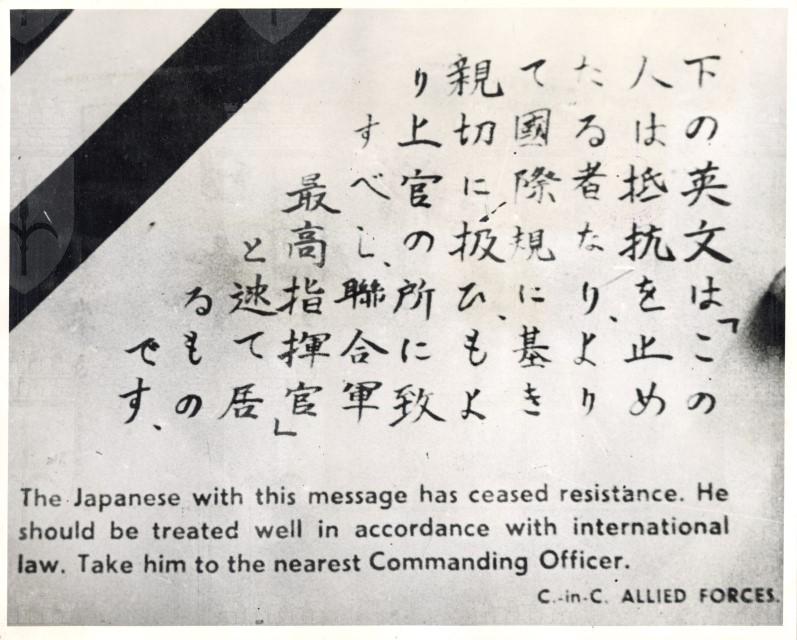 下の英文は「この
人は抵抗を止め
たる者なり、より
て國際規に基き
親切に扱ひ、もよ
り上官の所に致
すべし、聯合軍
最高指揮官」
と述て居
るもの
です、
The Japanese with this message has ceased resistance. He
should be treated well in accordance with international
law. Take him to the nearest Commanding Officer.
C.-in-C. ALLIED FORCES.